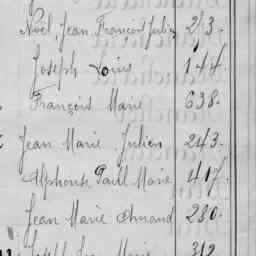 Noël Jean François Julien 213.
Joseph Louis 144.
François Marie 638.
Jean Marie Julien 243.
Alphonse Paul Marie 417.
Jean Marie Armand 280.
Joseph Marie 312